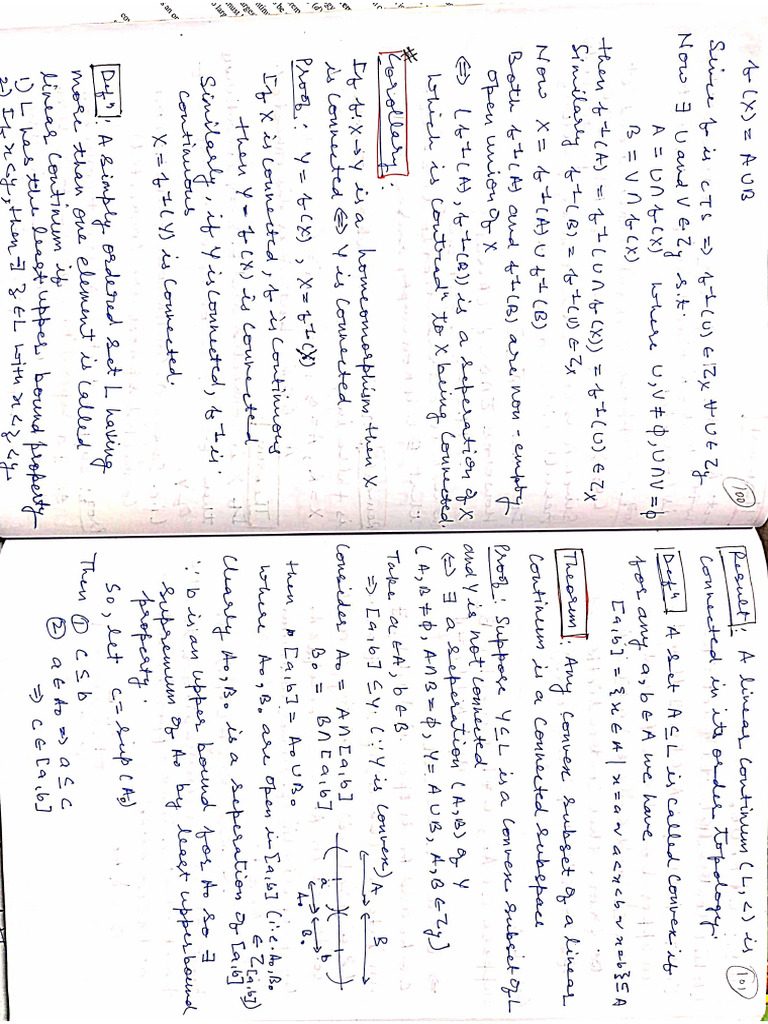 100
f(X) = A∪B
Since f is CTS ⇒ f⁻¹(U) ∈ τ_X ∀ U ∈ τ_Y
Now ∃ U and V ∈ τ_Y s.t.
A = U∩f(X) where U,V ≠ ϕ, U∩V = ϕ
B = V∩f(X)
then f⁻¹(A) = f⁻¹(U∩f(X)) = f⁻¹(U) ∈ τ_X
Similarly f⁻¹(B) = f⁻¹(V) ∈ τ_X
Now X = f⁻¹(A) ∪ f⁻¹(B)
Both f⁻¹(A) and f⁻¹(B) are non-empty
open union of X
⇔ (f⁻¹(A), f⁻¹(B)) is a seperation of X
which is contradⁿ to X being connected.
# Corollary :
If f: X→Y is a homeomorphism, then X
is connected ⇔ Y is connected
Proof : Y = f(X) , X = f⁻¹(X)
If X is connected, f is continuous
then Y = f(X) is connected
Similarly, if Y is connected, f⁻¹ is
continuous
X = f⁻¹(Y) is connected.
Defⁿ : A simply ordered set L having
more than one element is called
linear continum if
1) L has the least upper bound property
2) If x<y, then ∃ z∈L with x<z<y
101
Result : A linear continum (L,<) is
connected in its order topology.
Defⁿ : A set A⊆L is called convex if
for any a,b∈A we have
[a,b] = {x∈A | x=a ∨ a<x<b ∨ x=b} ⊆ A
Theorem : Any convex subset of a linear
continum is a connected subspace
Proof : Suppose Y⊆L is a convex subset of L
and Y is not connected
⇔ ∃ a seperation (A,B) of Y
(A,B≠ϕ, A∩B=ϕ, Y=A∪B, A,B∈τ_Y)
Take a∈A, b∈B
⇒ [a,b] ⊆ Y (∵ Y is convex)
A B
Consider A₀ = A∩[a,b]
B₀ = B∩[a,b]
a b
A₀ B₀
then [a,b] = A₀∪B₀
where A₀,B₀ are open in [a,b] (i.e. A₀,B₀
∈ τ[a,b])
Clearly A₀,B₀ is a seperation of [a,b]
∵ b is an upper bound for A₀ so ∃
supremum of A₀ by least upper bound
property.
So, let c = sup(A₀)
Then ① c≤b
② a∈A₀ ⇒ a≤c
⇒ c∈[a,b]